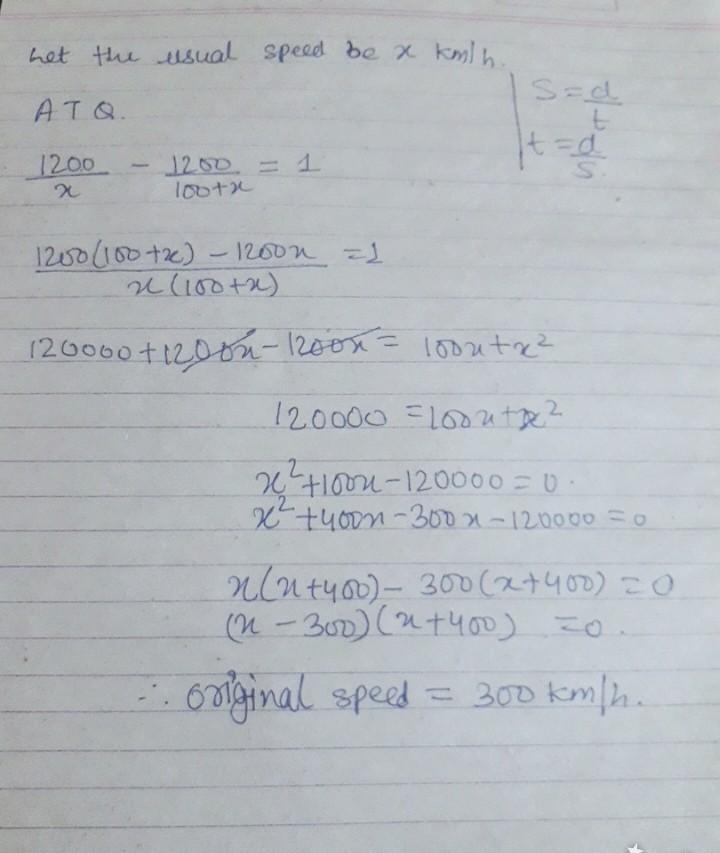 Let the usual speed be x km/h.
A T Q.
S = d/t
t = d/s.
1200/x - 1200/100+x = 1
1200(100+x) - 1200x / x(100+x) = 1
120000 + 1200x - 1200x = 100x + x²
120000 = 100x + x²
x² + 100x - 120000 = 0.
x² + 400x - 300x - 120000 = 0
x(x+400) - 300(x+400) = 0
(x - 300)(x+400) = 0.
∴ original speed = 300 km/h.